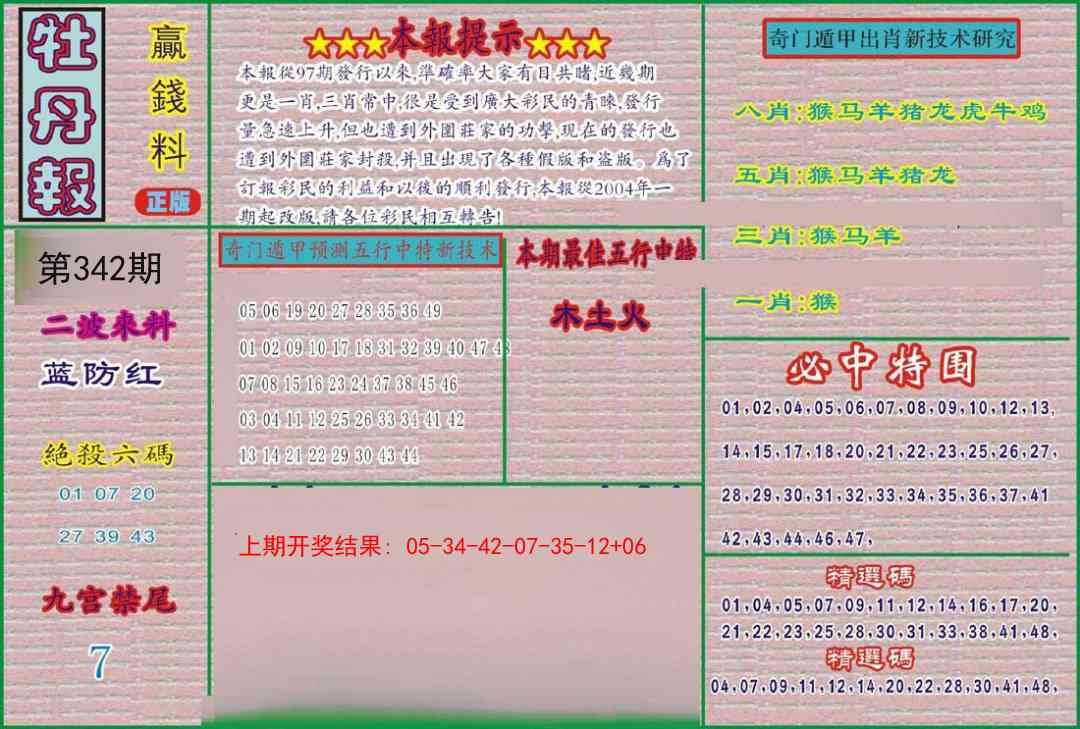 牡丹報
贏錢料
正版
第342期
二波來料
蓝防红
絕殺六碼
01 07 20
27 39 43
九宫禁尾
7
★★★本報提示★★★
本報從97期發行以來,準確率大家有目共睹,近幾期
更是一肖,三肖常中,很是受到廣大彩民的青睞,發行
量急速上升,但也遭到外圍莊家的功擊,現在的發行也
遭到外圍莊家封殺,并且出現了各種假版和盗版。爲了
訂報彩民的利益和以後的順利發行,本報從2004年一
期起改版,請各位彩民相互轉告!
奇门遁甲预测五行中特新技术
05 06 19 20 27 28 35 36 49
01 02 09 10 17 18 31 32 39 40 47 48
07 08 15 16 23 24 37 38 45 46
03 04 11 12 25 26 33 34 41 42
13 14 21 22 29 30 43 44
本期最佳五行中特
木土火
上期开奖结果: 05-34-42-07-35-12+06
奇门遁甲出肖新技术研究
八肖:猴马羊猪龙虎牛鸡
五肖:猴马羊猪龙
三肖:猴马羊
一肖:猴
必中特围
01,02,04,05,06,07,08,09,10,12,13,
14,15,17,18,20,21,22,23,25,26,27,
28,29,30,31,32,33,34,35,36,37,41
42,43,44,46,47,
精選碼
01,04,05,07,09,11,12,14,16,17,20,
21,22,23,25,28,30,31,33,38,41,48,
精選碼
04,07,09,11,12,14,20,22,28,30,41,48,